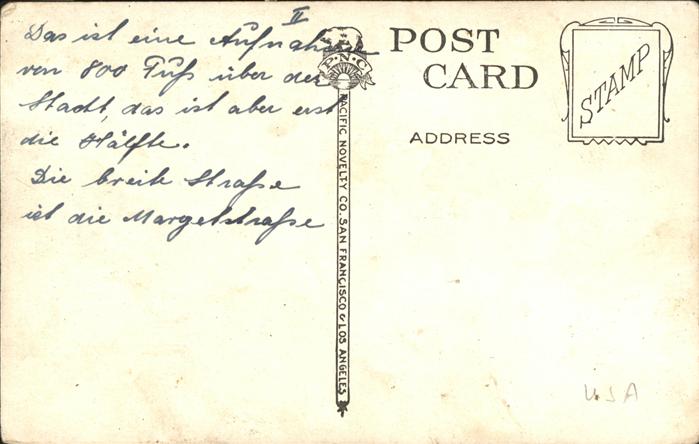 II
Das ist eine Aufnahme
von 800 Fuß über der
Stadt, das ist aber erst
die Hälfte.
Die breite Straße
ist die Margetstraße
P.N.C.
PACIFIC NOVELTY CO. SAN FRANCISCO & LOS ANGELES
POST
CARD
ADDRESS
STAMP
USA